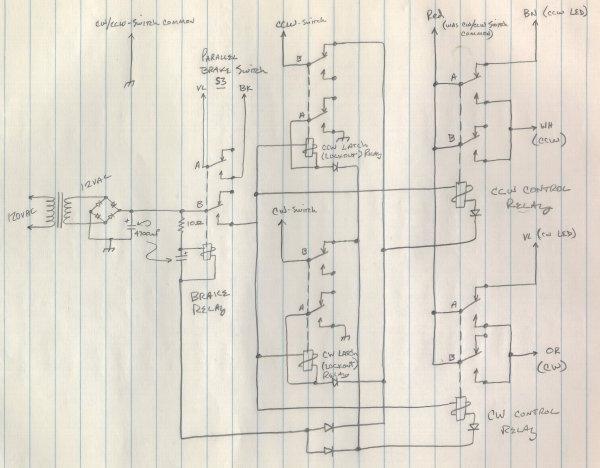 CW/CCW-SWITCH COMMON
PARALLEL
BRAKE SWITCH
S3
VL
BK
CCW-SWITCH
B
A
CCW LATCH
(LOCKOUT) RELAY
Red
(WAS CW/CCW SWITCH
COMMON)
BN (CCW LED)
A
B
WH
(CCW)
CCW CONTROL
RELAY
120VAC
12VAC
+
4700uF
10Ω
A
B
+
BRAKE
RELAY
CW-SWITCH
B
A
CW LATCH
(LOCKOUT)
RELAY
VL (CW LED)
A
B
OR
(CW)
CW CONTROL
RELAY